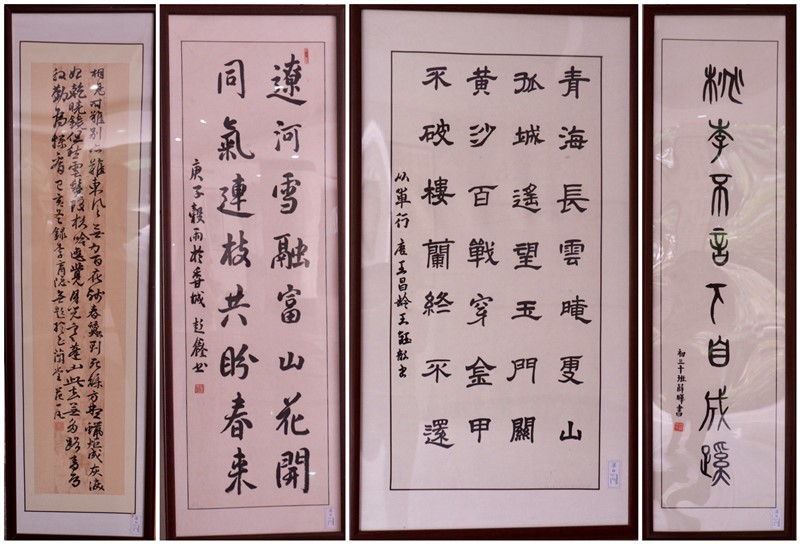 相見時難別亦難東風無力百花殘春蠶到死絲方盡蠟炬成灰淚
始乾曉鏡但愁雲鬢改夜吟應覺月光寒蓬山此去無多路青鳥
殷勤為探看 己亥冬錄李商隱無題於上蘭堂
遼河雪融富山花開
同氣連枝共盼春来
庚子穀雨於香城 彭鑫書
青海長雲晻雪山
孤城遙望玉門關
黄沙百戰穿金甲
不破樓蘭終不還
从軍行 唐王昌齡 王鈺歆書
桃李不言下自成蹊
初三十班薛曄書